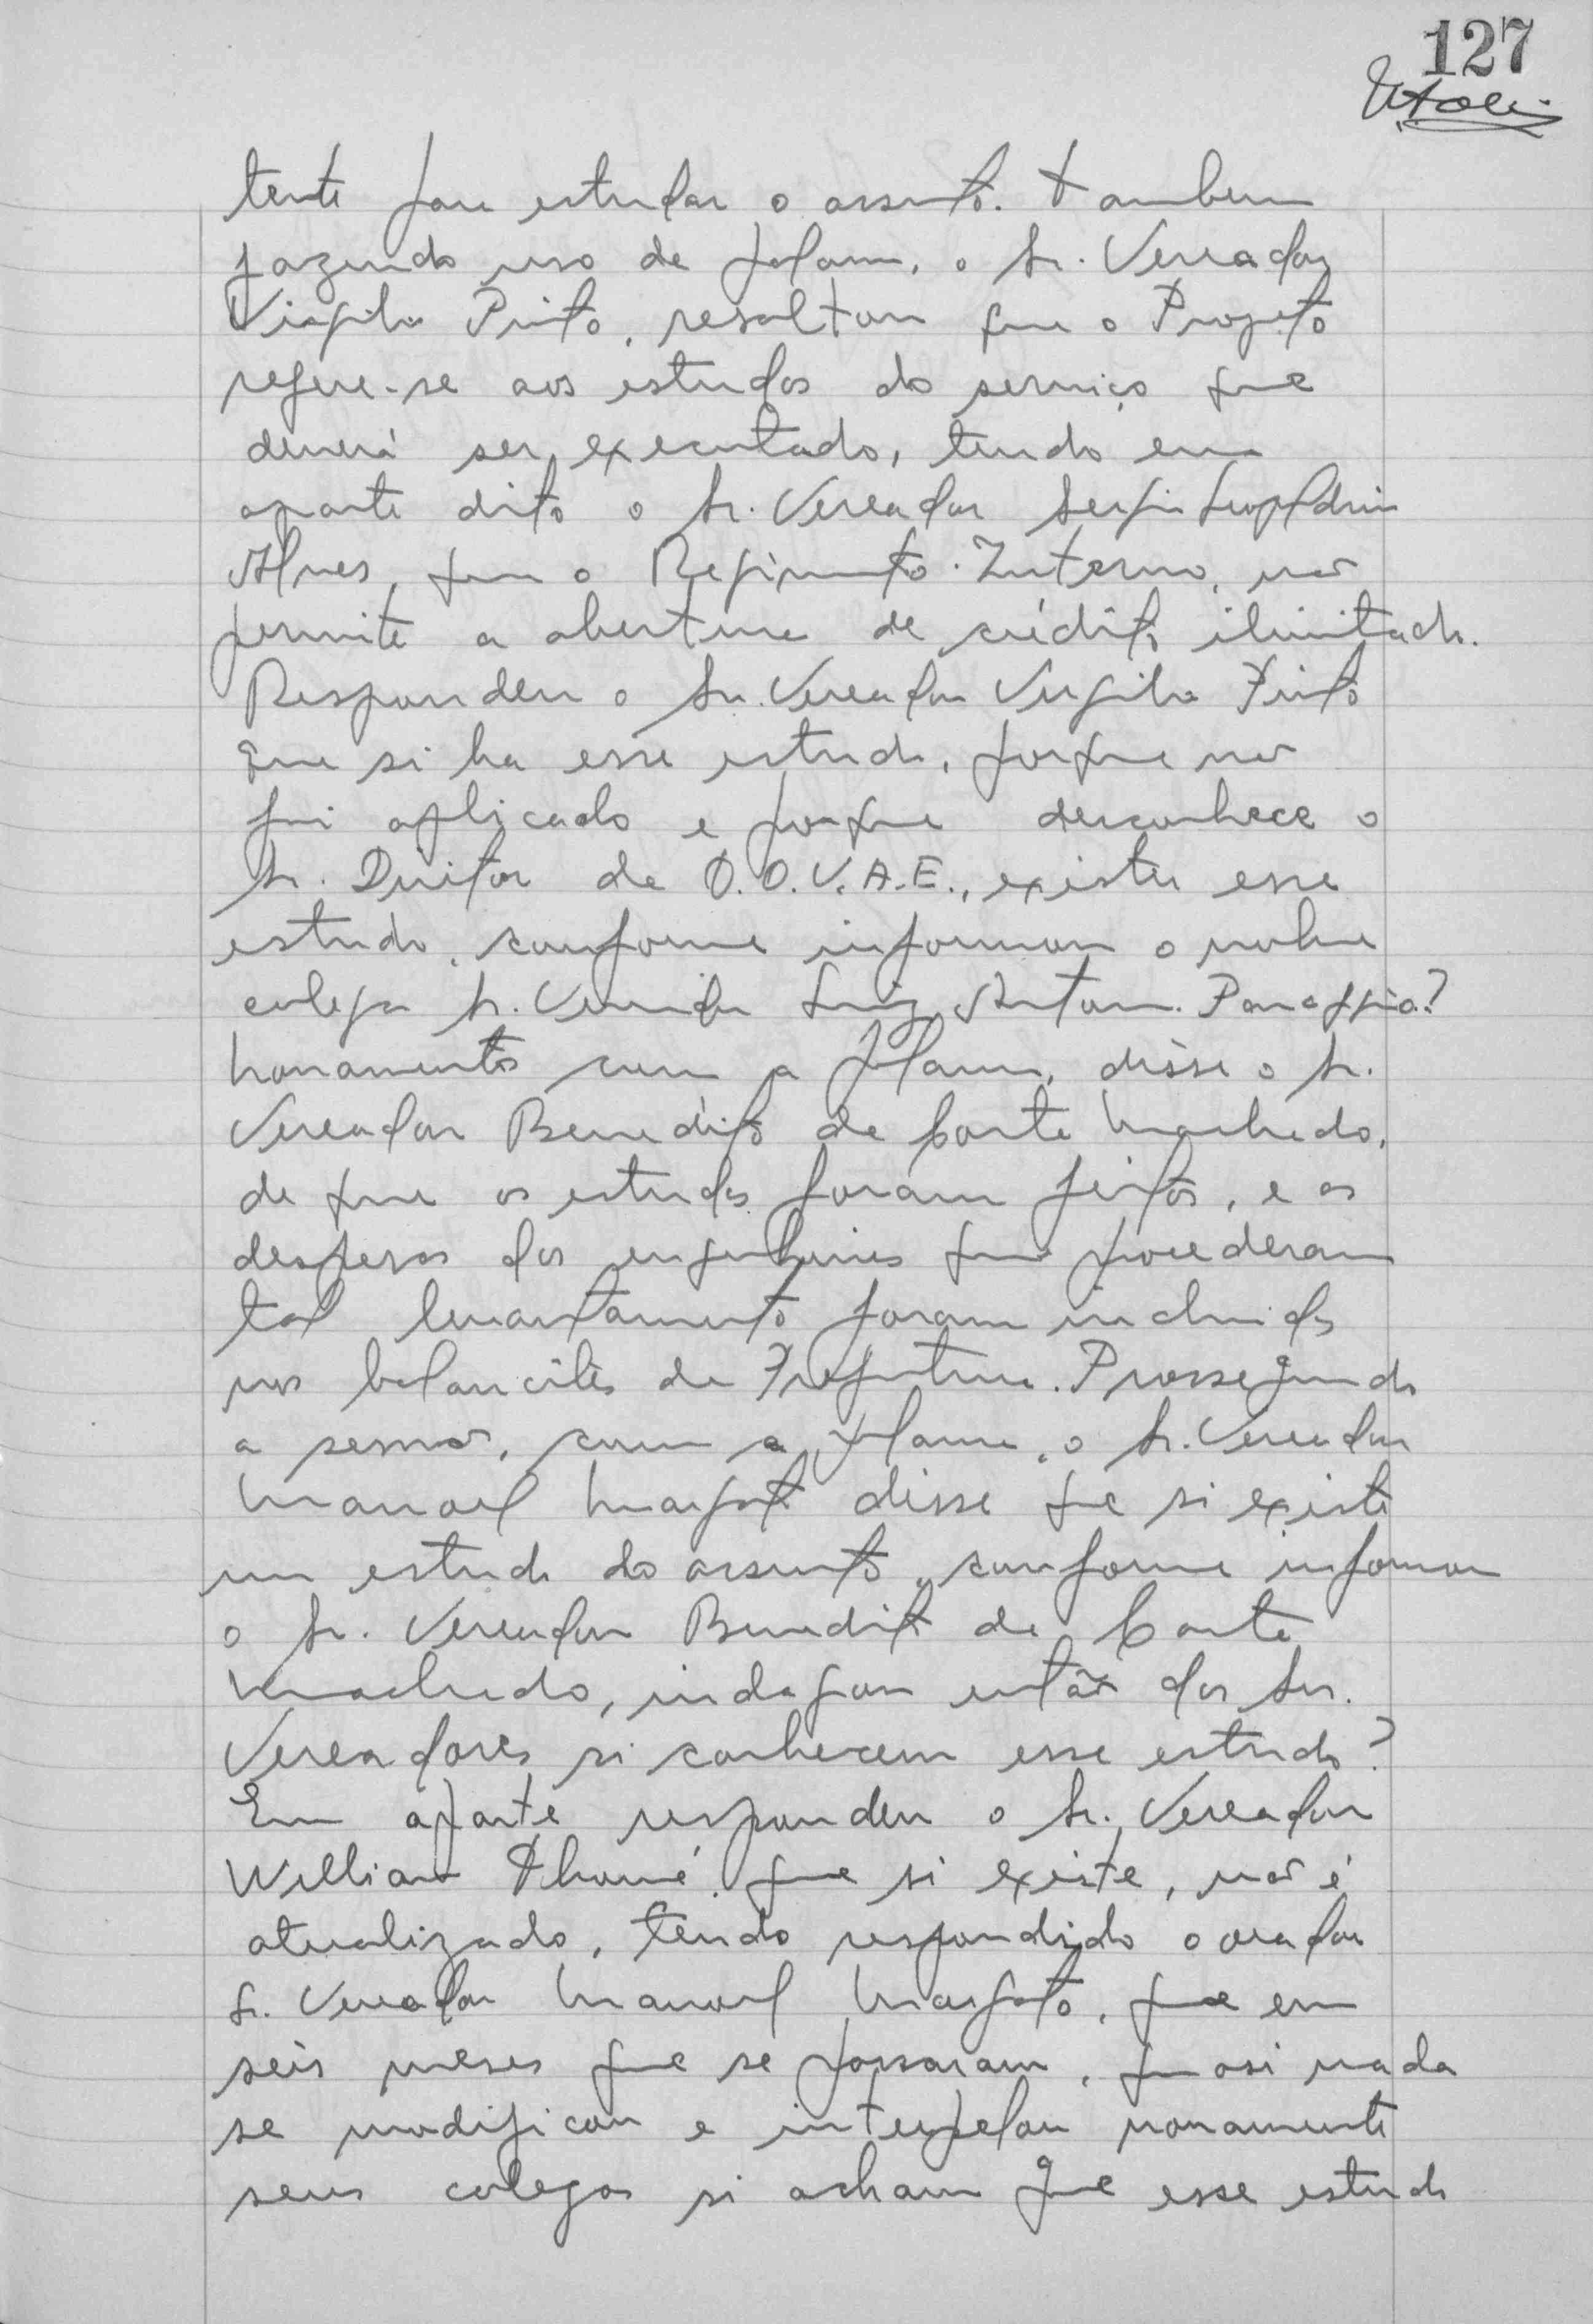 127
tente para estudar o assunto. Tambem
fazendo uso da palavra, o Sr. Vereador
Virgilio Pinto, resaltou que o Projeto
refere-se aos estudos do serviço que
deverá ser executado, tendo em
aparte dito o Sr. Vereador Sergio Leopoldino
Alves, que o Regimento Interno, não
permite a abertura de crédito ilimitado.
Respondeu o Sr. Vereador Virgilio Pinto
que si ha esse estudo, porque não
foi aplicado e porque desconhece o
Sr. Diretor da D.O.V.A.E., existir esse
estudo, conforme informou o nobre
colega Sr. Vereador Luiz Antonio
Novamente com a palavra, disse o Sr.
Vereador Benedito de Conte Machado,
de que os estudos foram feitos, e as
despesas dos engenheiros que procederam
tal levantamento foram incluidos
nos balancêtes da Prefeitura. Prosseguindo
a sessão, com a palavra, o Sr. Vereador
Manoel disse que si existe
um estudo do assunto, conforme informou
o Sr. Vereador Benedito de Conte
Machado, indagou então dos Srs.
Vereadores si conhecem esse estudo?
Em aparte respondeu o Sr. Vereador
Willian Thomé, que si existe, não é
atualizado, tendo respondido o orador
Sr. Vereador Manoel, que em
seis meses que se passaram, quasi nada
se modificou e interpelou novamente
seus colegas si acham que esse estudo